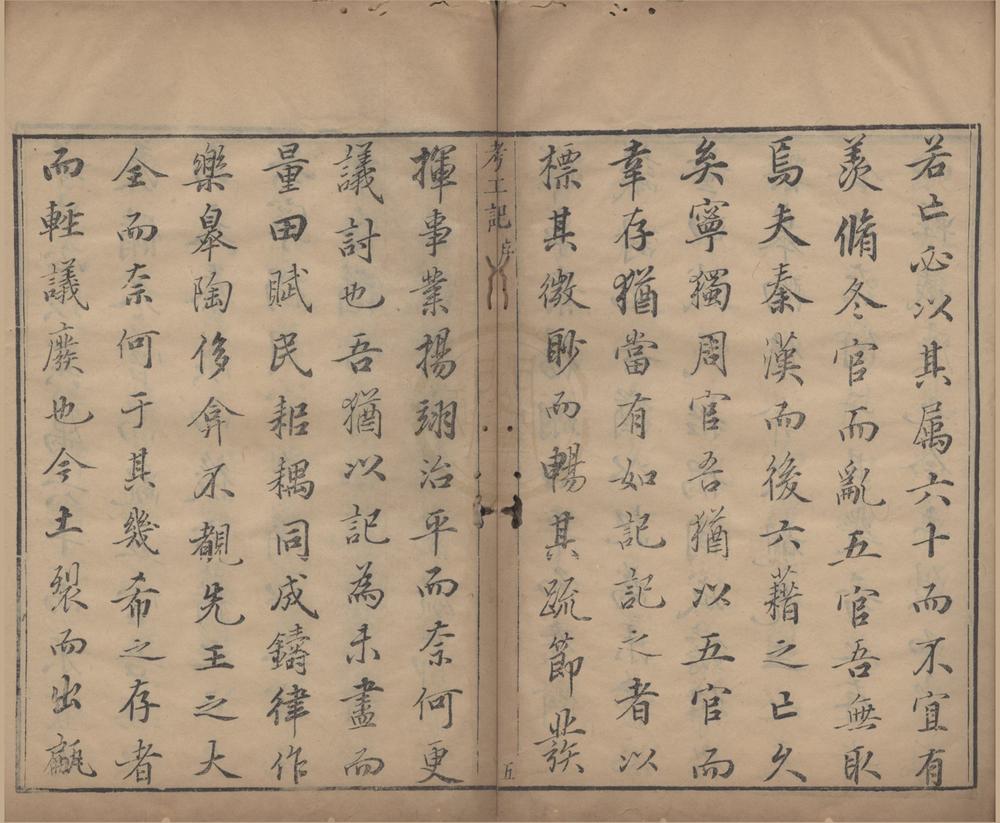 若亡必以其属六十而不宜有
羨脩冬官而亂五官吾無取
焉夫秦漢而後六藉之亡久
矣寧獨周官吾猶以五官而
幸存猶當有如記記之者以
標其微眇而暢其疏節
考工記 序 五
揮事業揚翊治平而奈何更
議討也吾猶以記為未盡而
量田賦民耜耦同成鑄律作
樂皋陶侈弇不覩先王之大
全而奈何于其幾希之存者
而輕議廢也今土裂而出